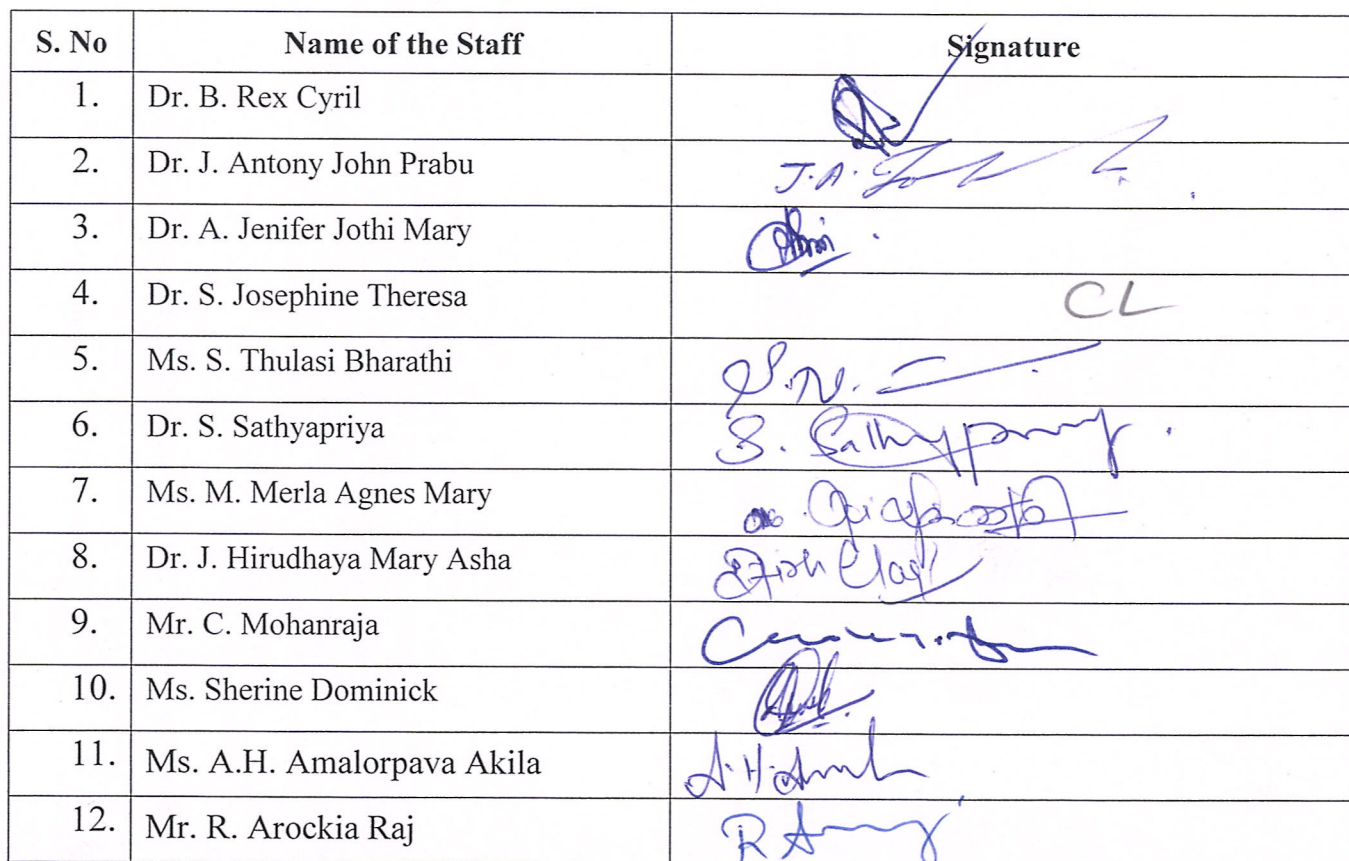 S. No Name of the Staff Signature
1. Dr. B. Rex Cyril
2. Dr. J. Antony John Prabu J.A.
3. Dr. A. Jenifer Jothi Mary
4. Dr. S. Josephine Theresa CL
5. Ms. S. Thulasi Bharathi
6. Dr. S. Sathyapriya S.
7. Ms. M. Merla Agnes Mary
8. Dr. J. Hirudhaya Mary Asha
9. Mr. C. Mohanraja
10. Ms. Sherine Dominick
11. Ms. A.H. Amalorpava Akila A.H.
12. Mr. R. Arockia Raj R